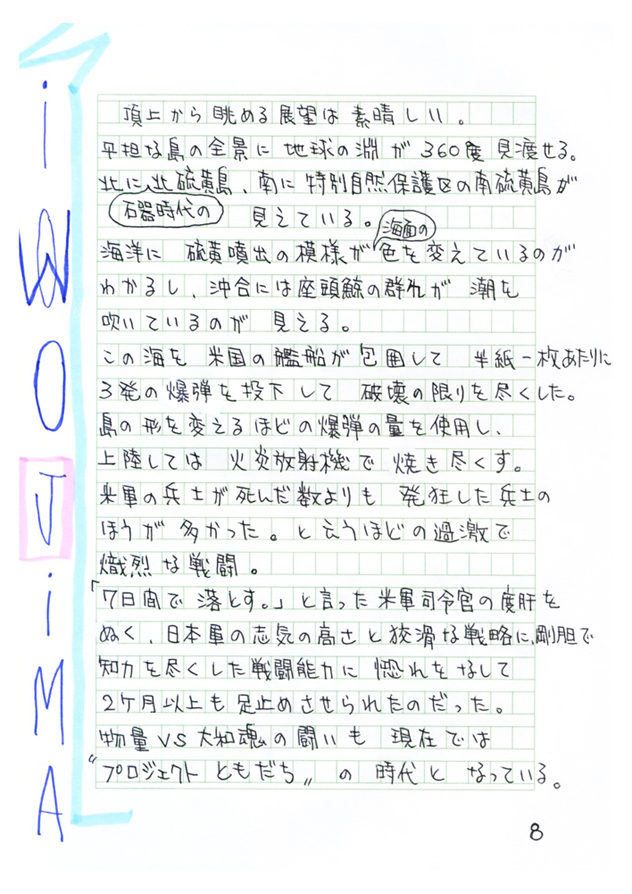 iWOJiMA
頂上から眺める展望は素晴しい。
平担な島の全景に地球の淵が360度見渡せる。
北に北硫黄島、南に特別自然保護区の南硫黄島が
石器時代の
見えている。
海面の
海洋に硫黄噴出の模様が色を変えているのが
わかるし、沖合には座頭鯨の群れが潮を
吹いているのが見える。
この海を米国の艦船が包囲して半紙一枚あたりに
3発の爆弾を投下して破壊の限りを尽くした。
島の形を変えるほどの爆弾の量を使用し、
上陸しては火炎放射機で焼き尽くす。
米軍の兵士が死んだ数よりも発狂した兵士の
ほうが多かった。と云うほどの過激で
熾烈な戦闘。
「7日間で落とす。」と言った米軍司令官の度肝を
ぬく、日本軍の志気の高さと狡滑な戦略に、剛胆で
知力を尽くした戦闘能力に惚れをなして
2ケ月以上も足止めさせられたのだった。
物量VS大和魂の闘いも現在では
〝プロジェクトともだち〟の時代となっている。
8